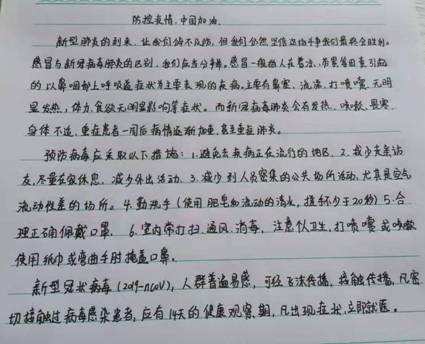 防控疫情,中国加油。
新型肺炎的到来,让我们猝不及防,但我们仍然坚信这场斗争我们最终会胜利。
感冒与新冠病毒肺炎的区别,我们应当分辨。感冒一般指人在着凉、劳累等因素引起
的以鼻咽部上呼吸道症状为主要表现的疾病。主要有鼻塞、流涕、打喷嚏、无明
显发热,体力、食欲无明显影响等症状。而新冠病毒肺炎会有发热、咳嗽、畏寒、
身体不适,重症患者一周后病情逐渐加重,甚至重症肺炎。
预防病毒应采取以下措施:1.避免去疾病正在流行的地区。2.减少走亲访
友,尽量在家休息,减少外出活动。3.减少到人员密集的公共场所活动,尤其是空气
流动性差的场所。4.勤洗手(使用肥皂和流动的清水,搓手不少于20秒)5.合
理正确佩戴口罩。6.室内常打扫、通风、消毒,注意个人卫生,打喷嚏或咳嗽
使用纸巾或弯曲手肘掩盖口鼻。
新型冠状病毒(2019-nCoV),人群普遍易感,可经飞沫传播、接触传播,凡密
切接触过病毒感染患者,应有14天的健康观察期,凡出现症状,立即就医。